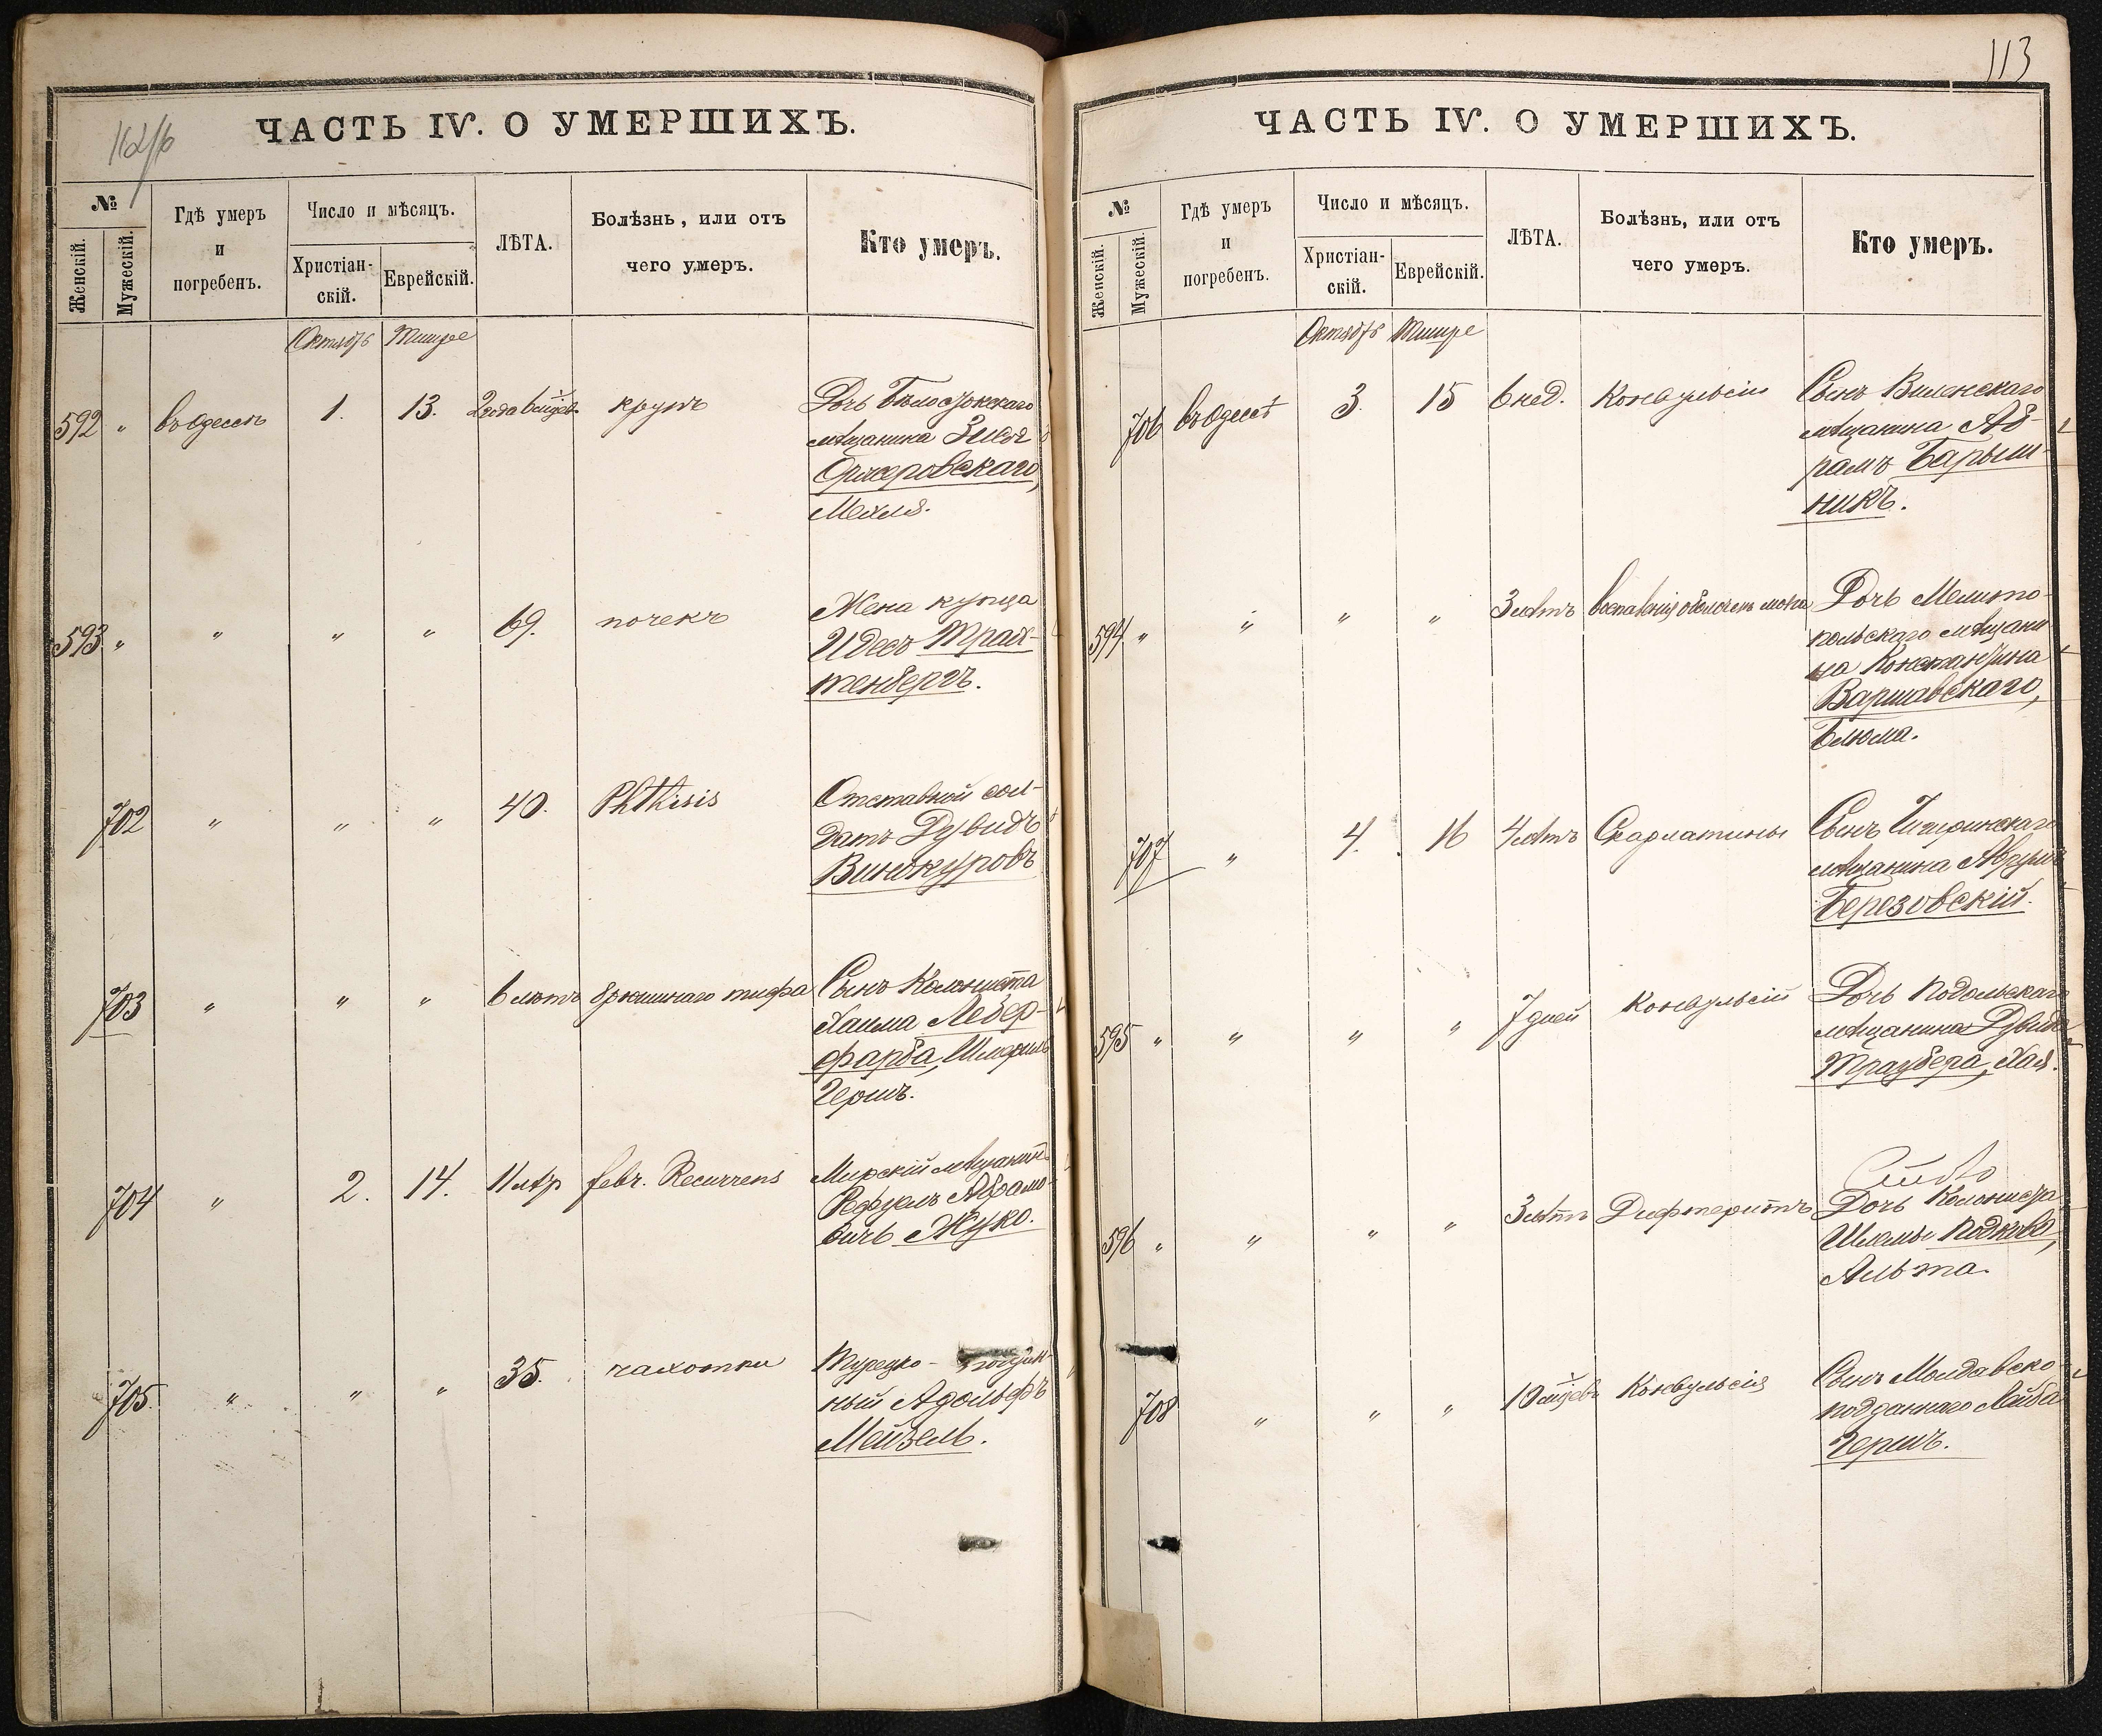 112/б
ЧАСТЬ IV. О УМЕРШИХЪ.
№
Женскій.
Мужескій.
Гдѣ умеръ
и
погребенъ.
Число и мѣсяцъ.
Христіан-
скій.
Еврейскій.
ЛѢТА.
Болѣзнь, или отъ
чего умеръ.
Кто умеръ.
Октябрь Тишре
592 " въ Одессѣ 1. 13. 2 года 6 мѣсяц. крупъ
Дочь Бѣлостокскаго
мѣщанина
Мехля.
593 " " " " 69. почекъ
Жена купца
Идесъ Трах-
тенбергъ.
702 " " " 40. Phthisis
Отставной сол-
датъ Дувидъ
Винокуровъ
703 " " " 6 лѣтъ брюшнаго тифа
Сынъ Колониста
Хаима Лебер-
фарба,
Гершъ.
704 " 2. 14. 11 лѣт febr. Recurrens
Мирскій мѣщанинъ
Абрамо-
вичъ Жуко.
705 " " " 35. чахотки
Турецко-поддан-
ный Адольфъ
Мейзель.
113
ЧАСТЬ IV. О УМЕРШИХЪ.
№
Женскій.
Мужескій.
Гдѣ умеръ
и
погребенъ.
Число и мѣсяцъ.
Христіан-
скій.
Еврейскій.
ЛѢТА.
Болѣзнь, или отъ
чего умеръ.
Кто умеръ.
Октябрь Тишре
706 въ Одессѣ 3. 15 6 нед. Конвульсіи
Сынъ Виленскаго
мѣщанина Аб-
рамъ Барыш-
никъ.
594 " " " " 3 лѣтъ воспаленія оболочекъ мозга
Дочь Мелито-
польскаго мѣщани
на Константина
Варшавскаго,
Блюма.
707 " 4. 16 4 лѣтъ Скарлатины
Сынъ Чигиринскаго
мѣщанина Абрумъ
Березовскій.
595 " " " " 7 дней Конвульсіи
Дочь Подольскаго
мѣщанина Дувида
Траубера, Хая.
596 " " " " 3 лѣтъ Дифтеритъ
Дочь Колониста
Шламы Подково,
Альта.
708 " " " 10 мѣсяц. Конвульсія
Сынъ Молдавско-
подданнаго Лейба
Гершъ.